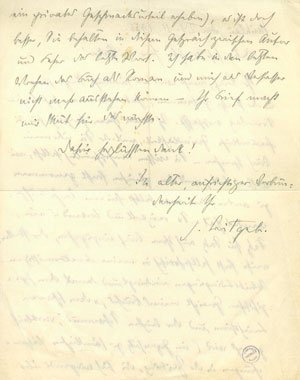 ein privates Geschmacksurteil erheben), so ist doch
besser, Sie behalten in diesem Gespräch zwischen Autor
und Leser das letzte Wort. Ich habe in den letzten
Wochen das Buch als Roman und mich als Verfasser
nicht mehr ausstehen können – Ihr Brief macht
mir Mut für das nächste.
Dafür herzlichsten Dank!
In alter, aufrichtiger Verbun-
denheit Ihr
J. Leitgeb.